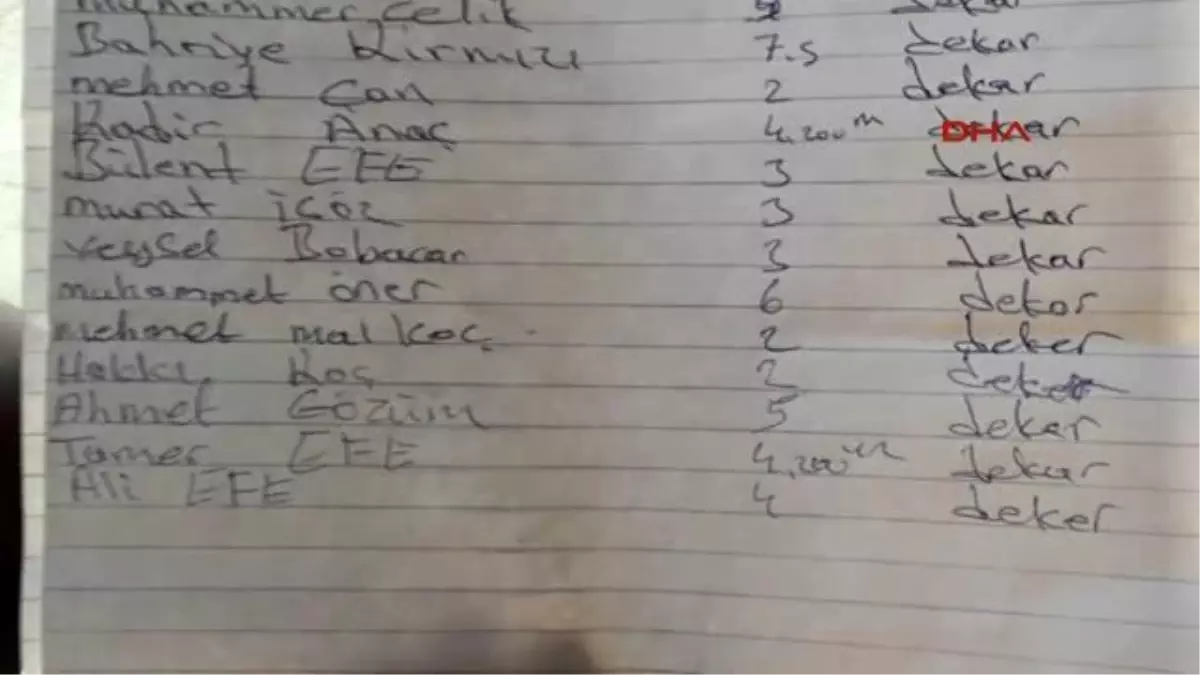 muhammer çelik dekar
Bahriye Kirmuzı 7.5 dekar
mehmet Can 2 dekar
Kadir Anaç 4.200m dekar
DHA
Bülent EFE 3 dekar
murat içöz 3 dekar
veysel Babacan 3 dekar
muhammet öner 6 dekar
mehmet malkoç 2 deker
Hakkı Koç 2 deker
Ahmet Gözüm 5 deker
Tamer EFE 4.200m dekar
Ali EFE 4 deker